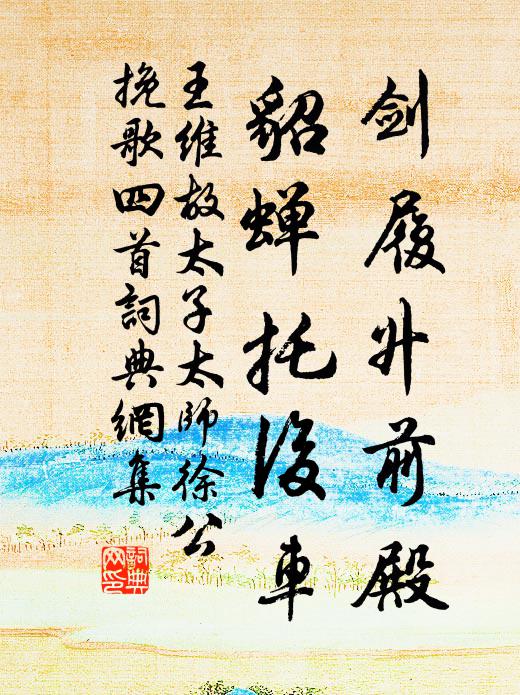 剑履升前殿
貂蝉托後车
王维故太子太师徐公
挽歌四首词典网集
詞典网印